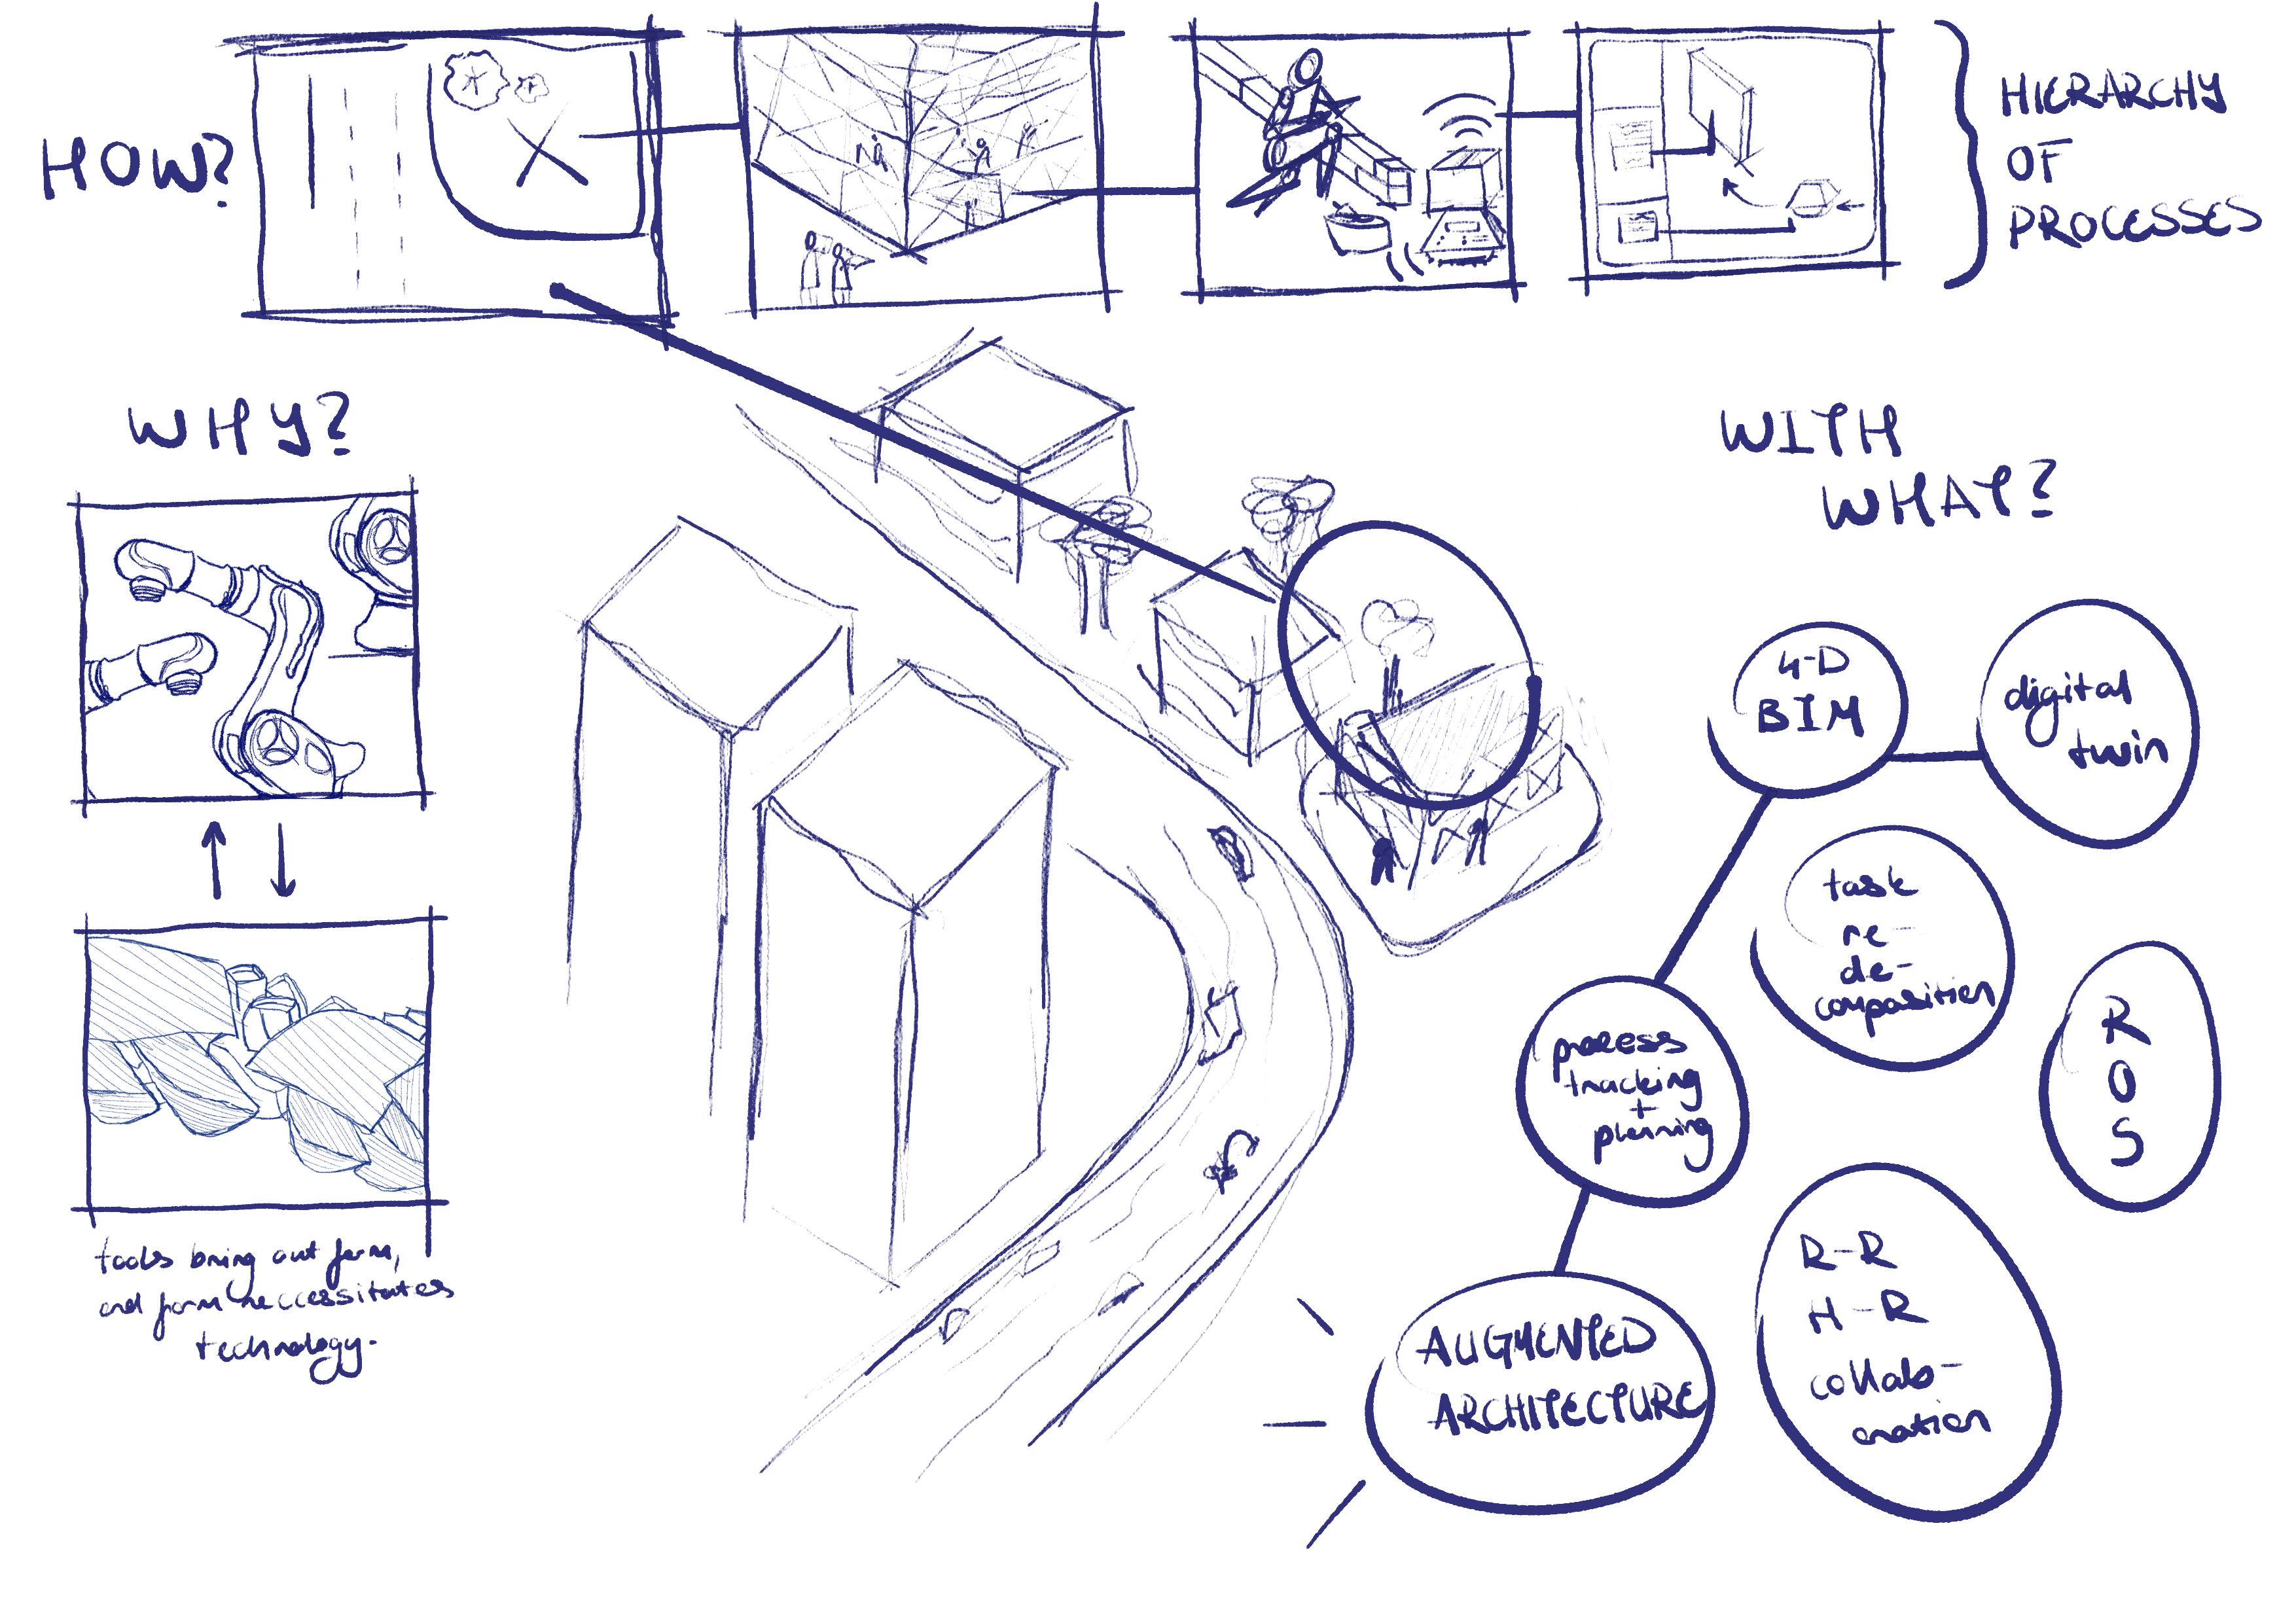 HOW?
HIERARCHY
OF
PROCESSES
WHY?
tools bring out form,
and form neccessitates
technology.
WITH
WHAT?
4-D
BIM
digital
twin
task
re-
de-
composition
ROS
process
tracking
+
planning
R-R
H-R
collab-
oration
AUGMENTED
ARCHITECTURE